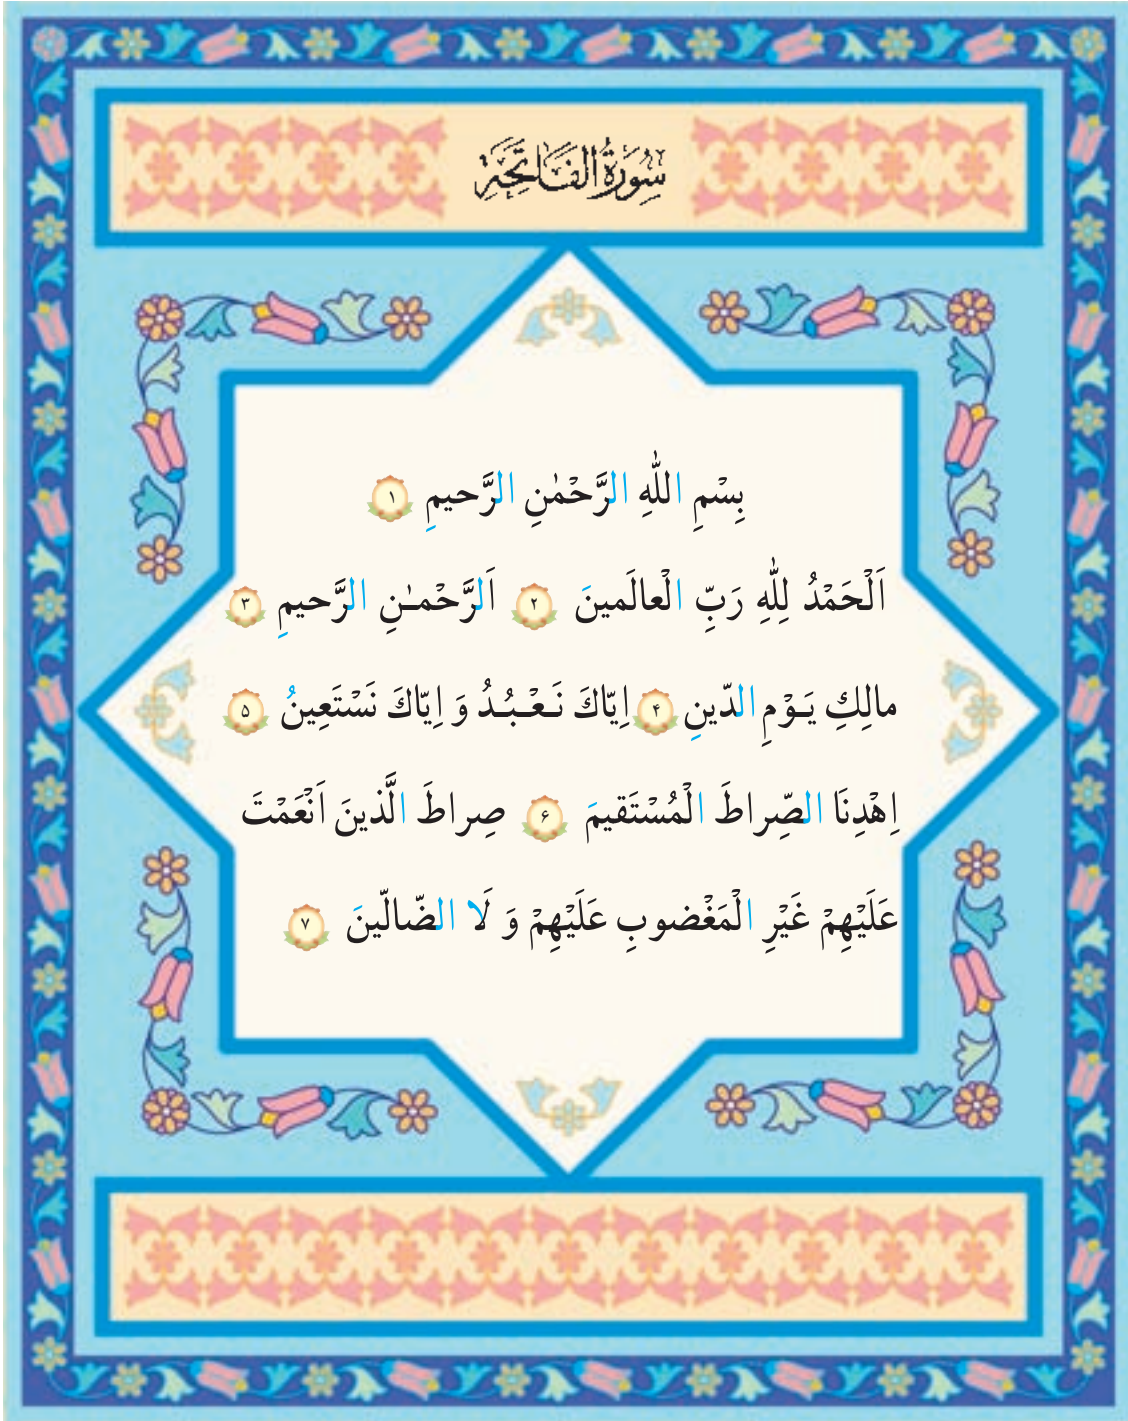 سُورَةُ الفَاتِحَةِ
بِسْمِ اللّٰهِ الرَّحْمٰنِ الرَّحيمِ ١
اَلْحَمْدُ لِلّٰهِ رَبِّ الْعالَمينَ ٢ اَلرَّحْمـٰنِ الرَّحيمِ ٣
مالِكِ يَـوْمِ الدّينِ ۴ اِيّاكَ نَـعْـبُـدُ وَ اِيّاكَ نَسْتَعِينُ ۵
اِهْدِنَا الصِّراطَ الْمُسْتَقيمَ ۶ صِراطَ الَّذينَ اَنْعَمْتَ
عَلَيْهِمْ غَيْرِ الْمَغْضوبِ عَلَيْهِمْ وَ لَا الضّالّينَ ٧